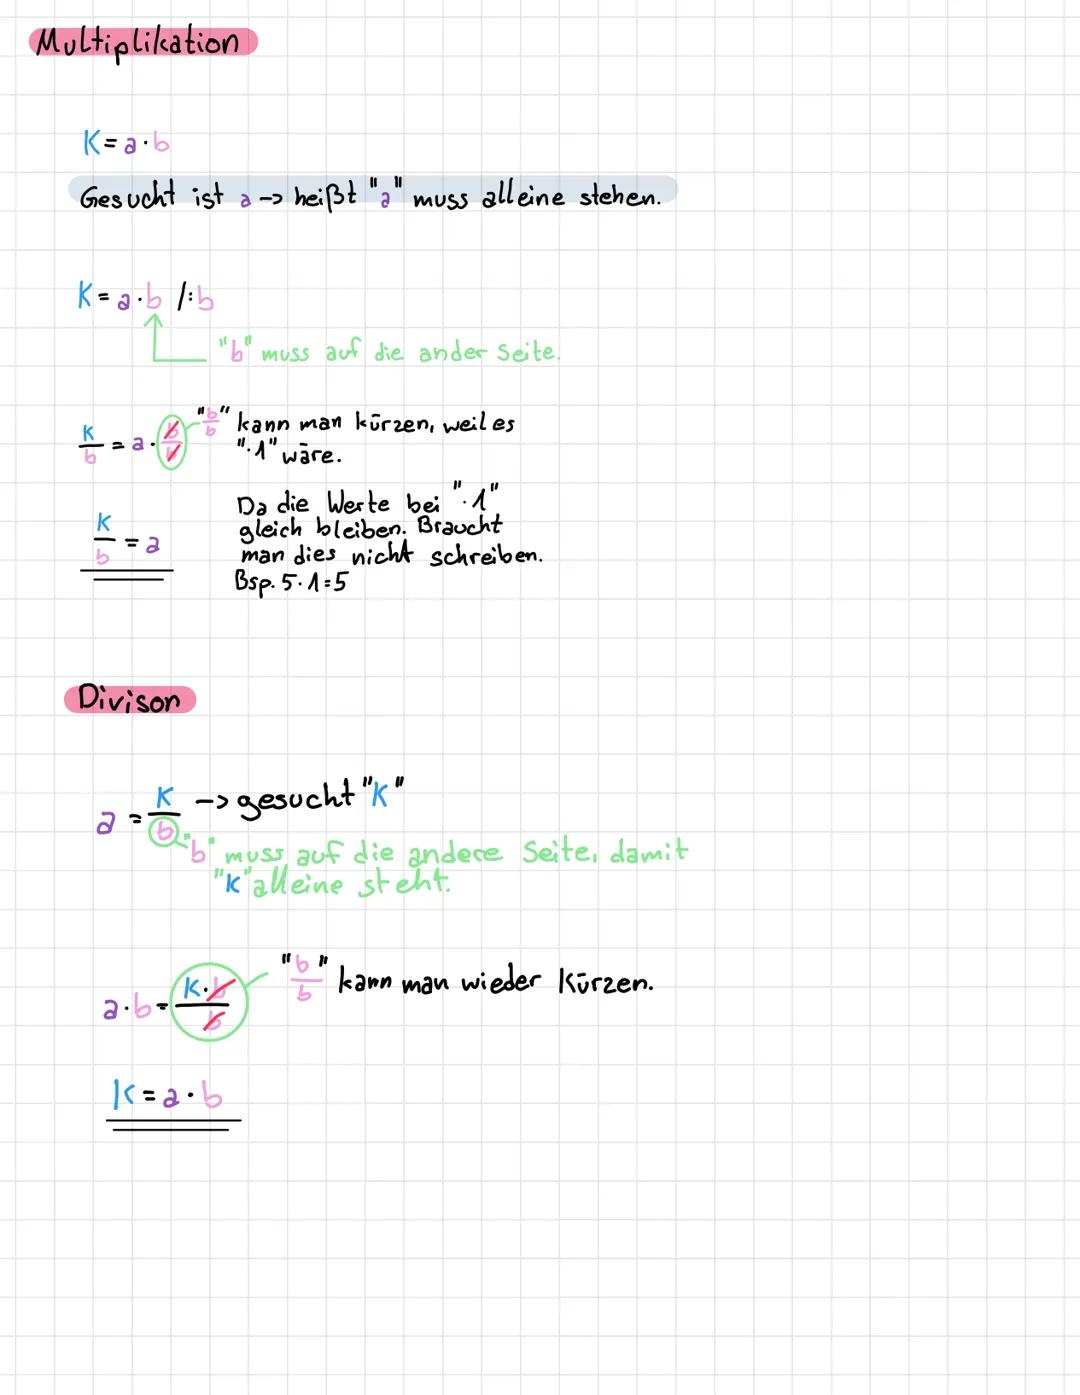 Multiplikation
K = a · b
Gesucht ist a -> heißt "a" muss alleine stehen.
K = a · b /: b
"b" muss auf die ander Seite.
K/b = a · b/b "b/b" kann man kürzen, weil es
"· 1" wäre.
K/b = a
Da die Werte bei "· 1"
gleich bleiben. Braucht
man dies nicht schreiben.
Bsp. 5 · 1 = 5
Divison
a = K/b -> gesucht "K"
"b" muss auf die andere Seite, damit
"K" alleine steht.
a · b = K · b/b "b/b" kann man wieder Kürzen.
K = a · b